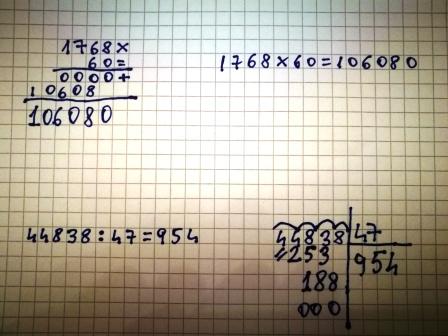 1768×
60=
0000+
10608
106080
1768×60=106080
44838:47=954
44838 47
253 954
188
000